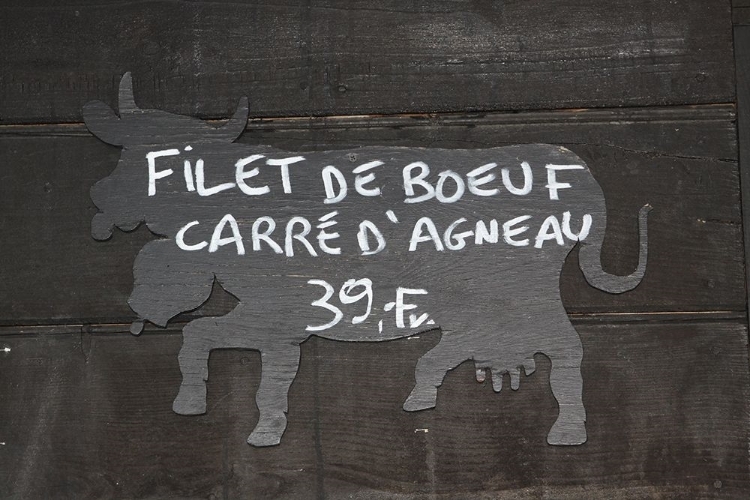 FiLET DE BOEUF
CARRÉ D'AGNEAU
39,- Fr.